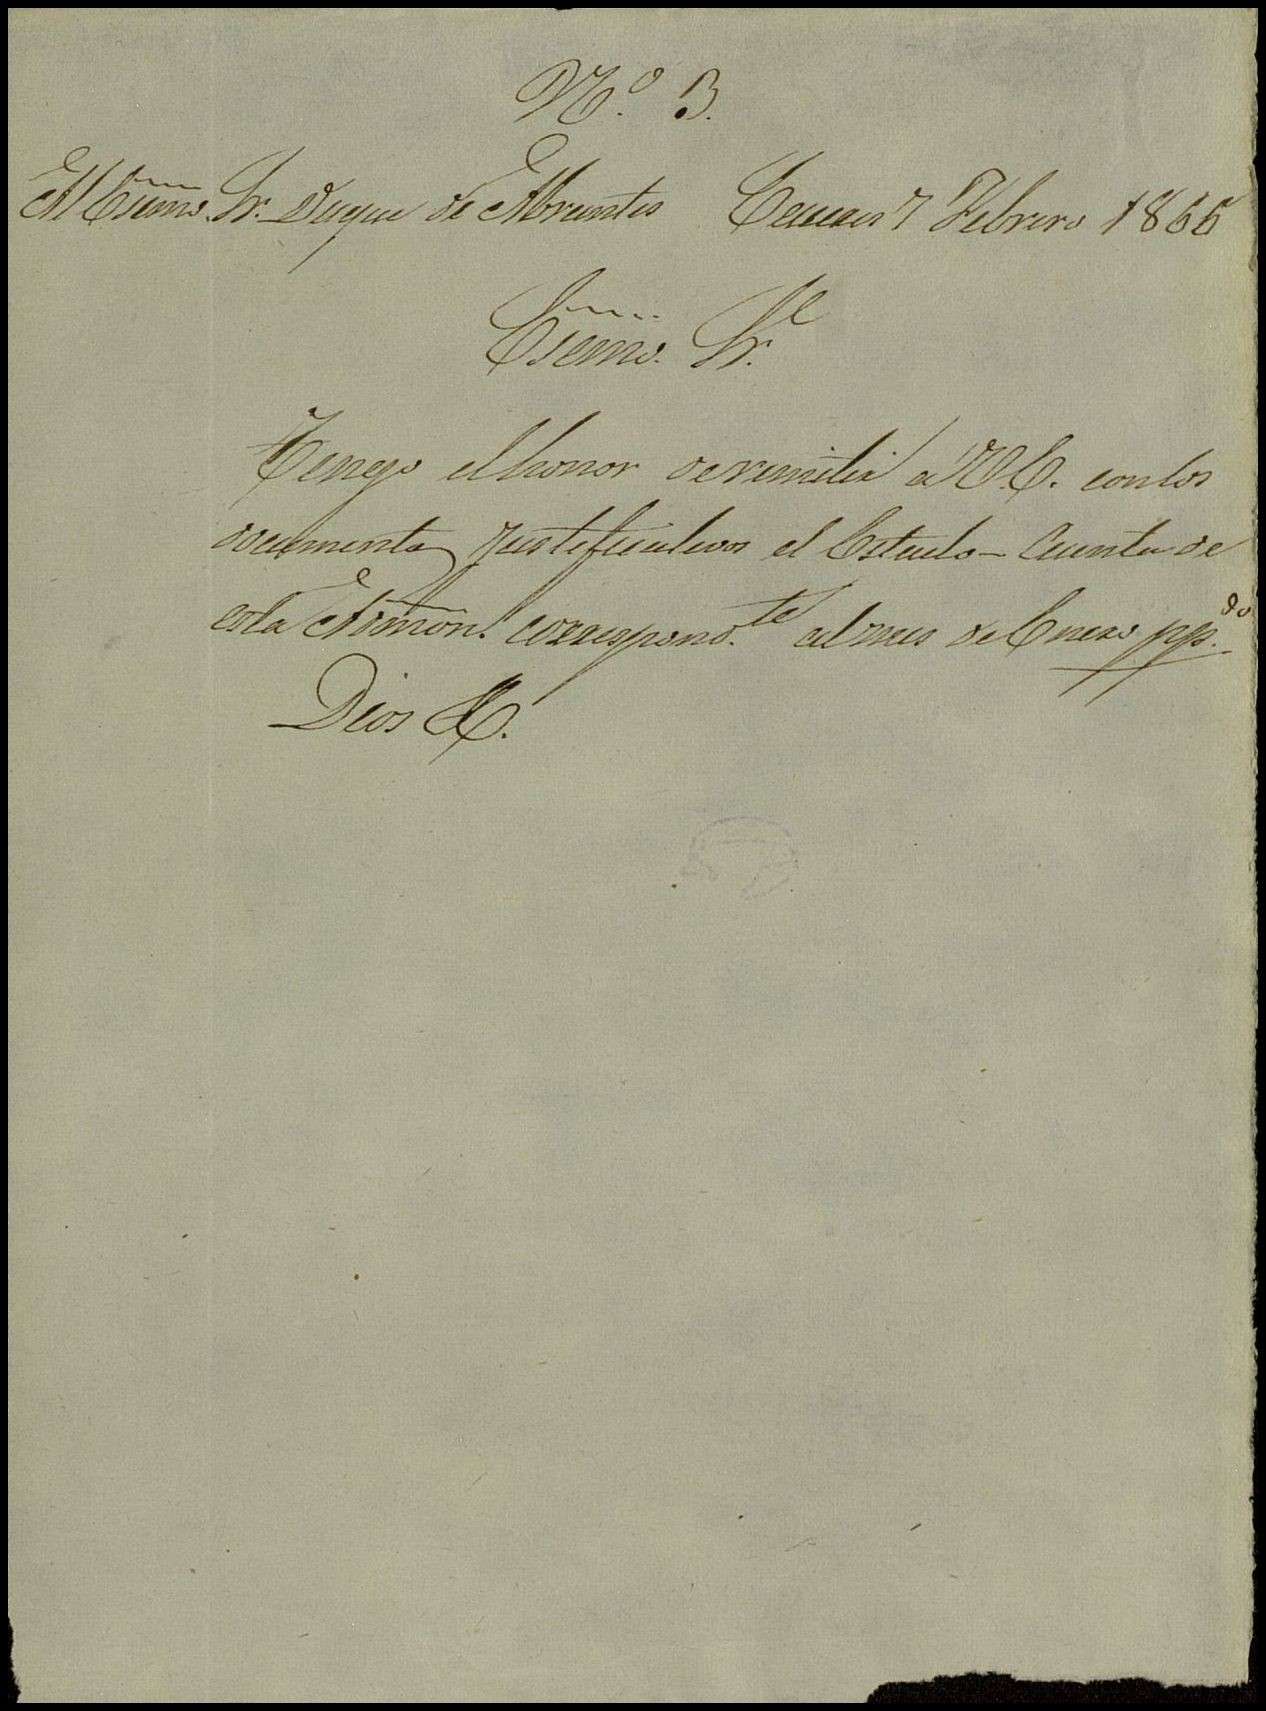 N.º 3.
Al Excmo. Sr. Duque de Abrantes 7 Febrero 1866
Excmo. Sr.
Tengo el honor de remitir a V.E. con los
documentos justificativos el Estado-Cuenta de
esta Admon. correspond.te al mes de Enero pp.do
Dios &.